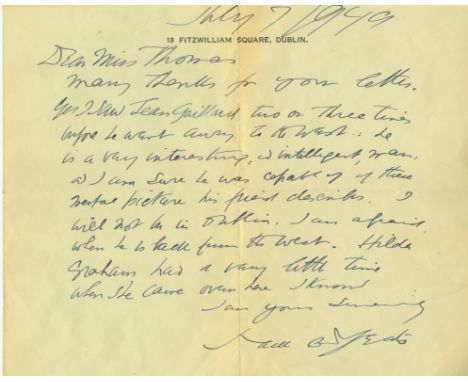 July 7 1949
18 FITZWILLIAM SQUARE, DUBLIN.
Dear Miss Thomas
Many thanks for your letter.
Yes I saw Jean Gaillard two or three times
before he went away to the West: he
is a very interesting, & intelligent, man.
& I am sure he was capable of of these
mental picture his friend describes. I
will not be in Dublin. I am afraid
when he is back from the West. Hilda
Graham had a very little time
when she came over here I know
I am yours sincerely
Jack B Yeats